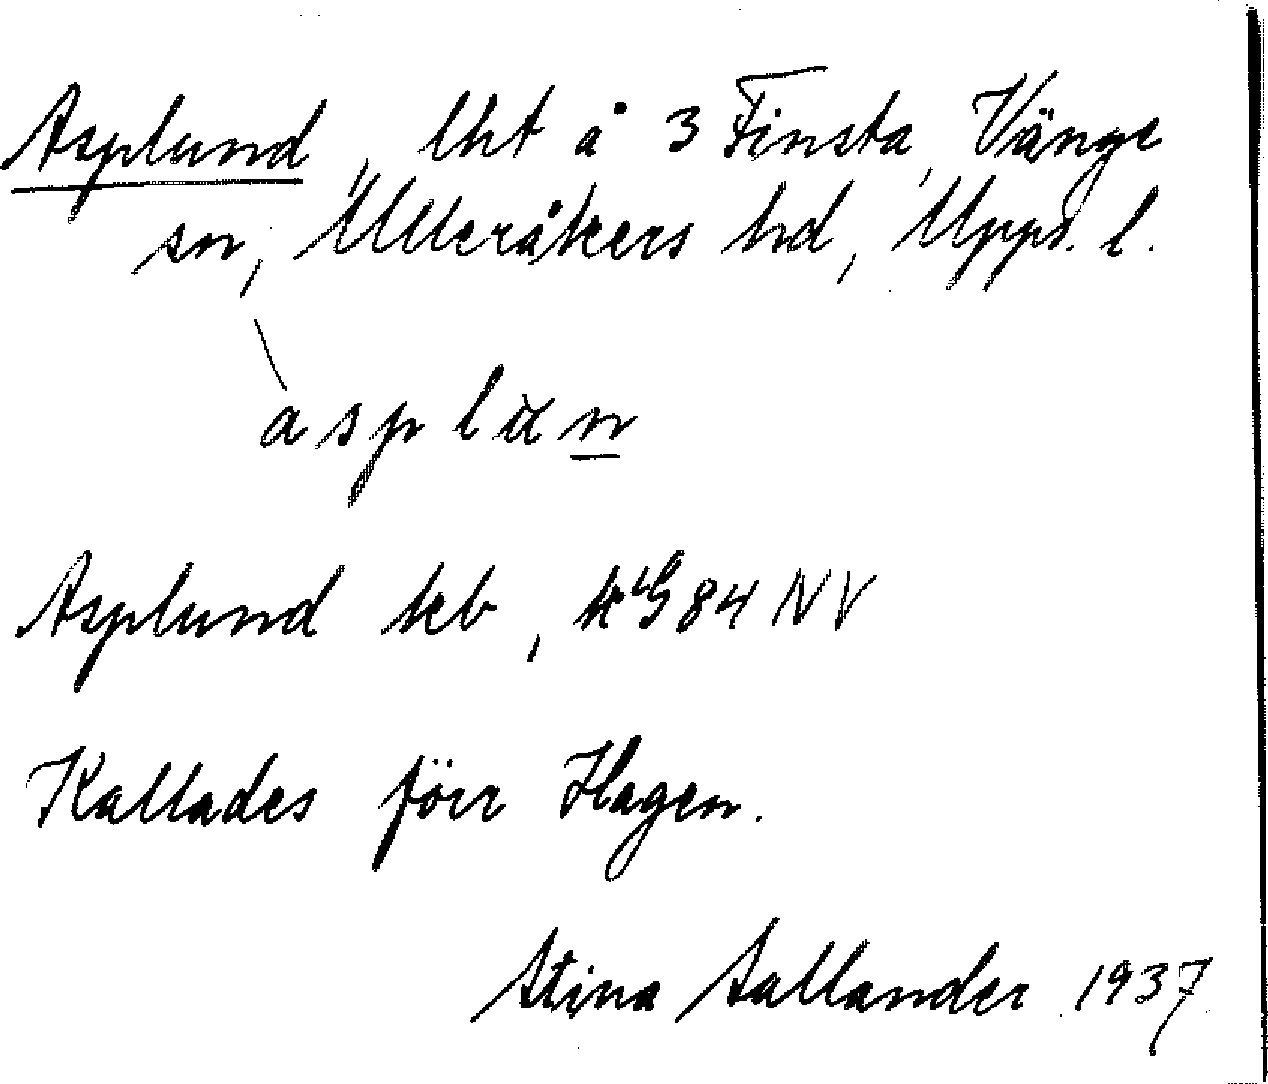 Asplund, lht å 3 Finsta, Vänge
sn, Ulleråkers hd, Upps. l.
\asplun
Asplund kb, kG84 NV
Kallades förr Hagen.
Stina Sallander 1937